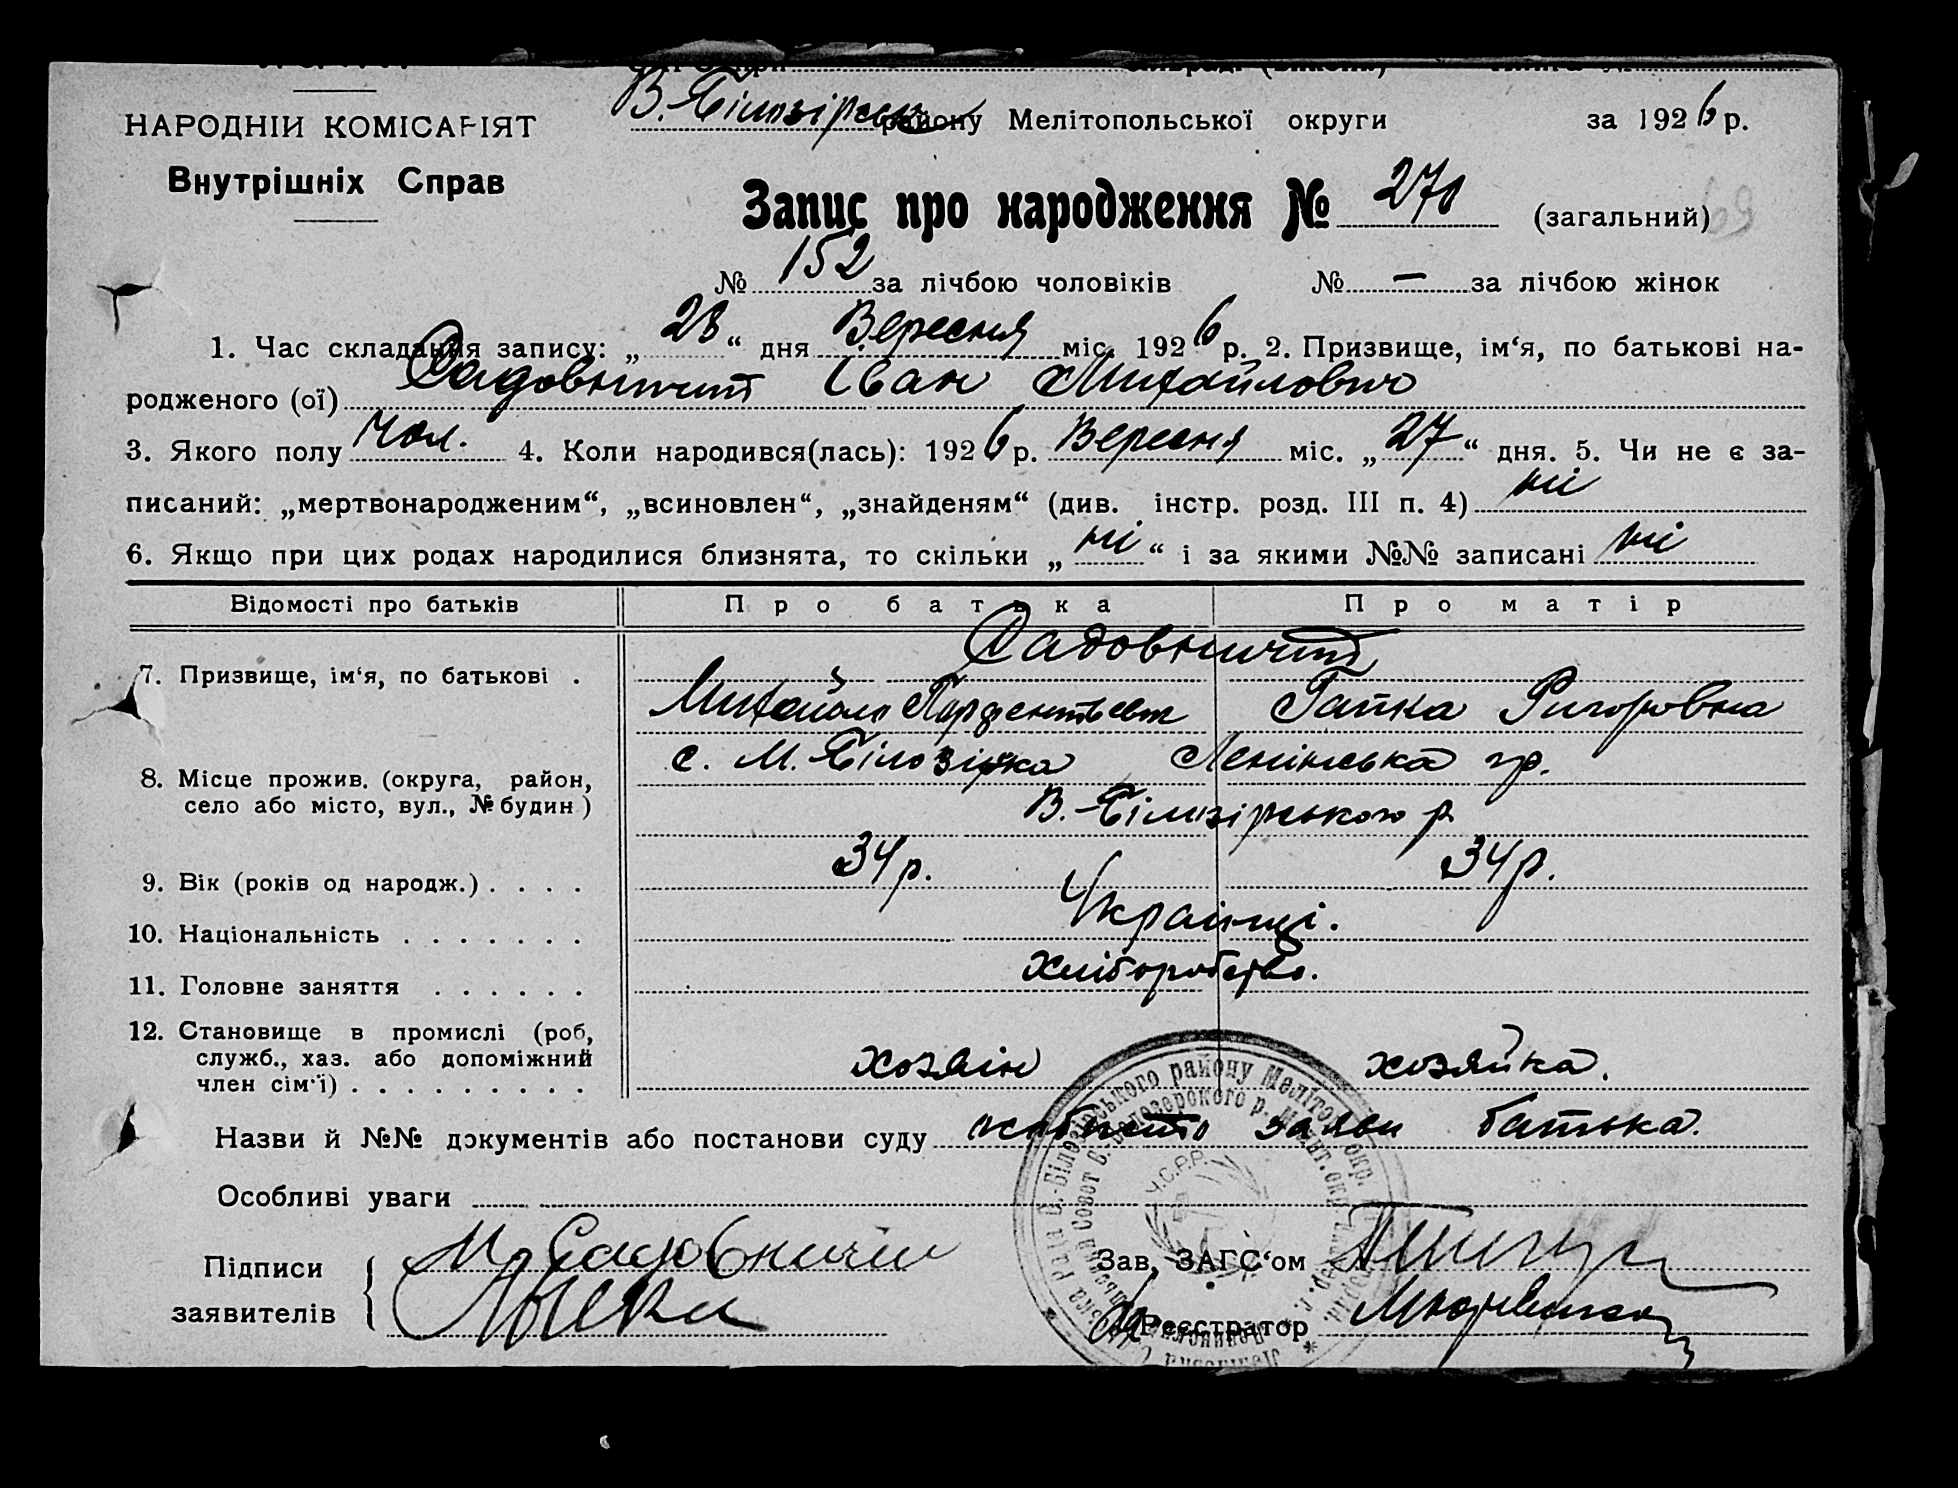 НАРОДНІЙ КОМІСАРІЯТ
Внутрішніх Справ
В.-Білозірськ району Мелітопольської округи за 1926 р.
Запис про народження № 270 (загальний)
№ 152 за лічбою чоловіків № — за лічбою жінок
1. Час складання запису: „28“ дня Вересня міс. 1926 р. 2. Призвище, ім‘я, по батькові на-
родженого (ої) Садовничий Іван Михайлович
3. Якого полу чол. 4. Коли народився(лась): 1926 р. Вересня міс. „27“ дня. 5. Чи не є за-
писаний: „мертвонародженим“, „всиновлен“, „знайденям“ (див. інстр. розд. III п. 4) ні
6. Якщо при цих родах народилися близнята, то скільки „ні“ і за якими №№ записані ні
Відомості про батьків Про батька Про матір
Садовничий
7. Призвище, ім‘я, по батькові .
Михайло Парфентьевич Гапка Григоровна
с. М. Білозірка Ленінська гр.
8. Місце прожив. (округа, район,
село або місто, вул., № будин)
В.-Білозірського р.
9. Вік (років од народж.) . . . . 34 р. 34 р.
10. Національність . . . . . . . Українці.
11. Головне заняття . . . . . . хліборобство.
12. Становище в промислі (роб,
служб., хаз. або допоміжний
член сім‘ї) . . . . . . . . . хозяін хозяйка.
Назви й №№ документів або постанови суду заяви батька.
Особливі уваги
Підписи
заявителів
М Садовничий
Зав. ЗАГС‘ом
Реєстратор
У.С.Р.Р.